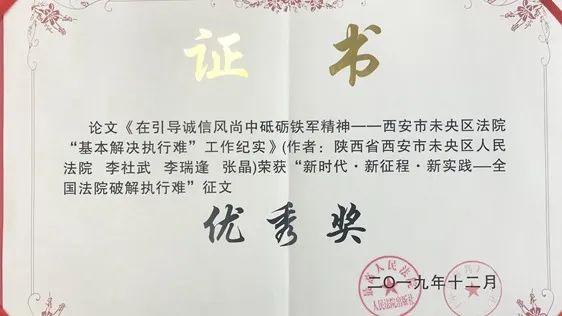 证书
论文《在引导诚信风尚中砥砺铁军精神——西安市未央区法院
“基本解决执行难”工作纪实》(作者：陕西省西安市未央区人民
法院 李社武 李瑞逢 张晶)荣获“新时代·新征程·新实践—全
国法院破解执行难”征文
优秀奖
二〇一九年十二月
人民法院出版社